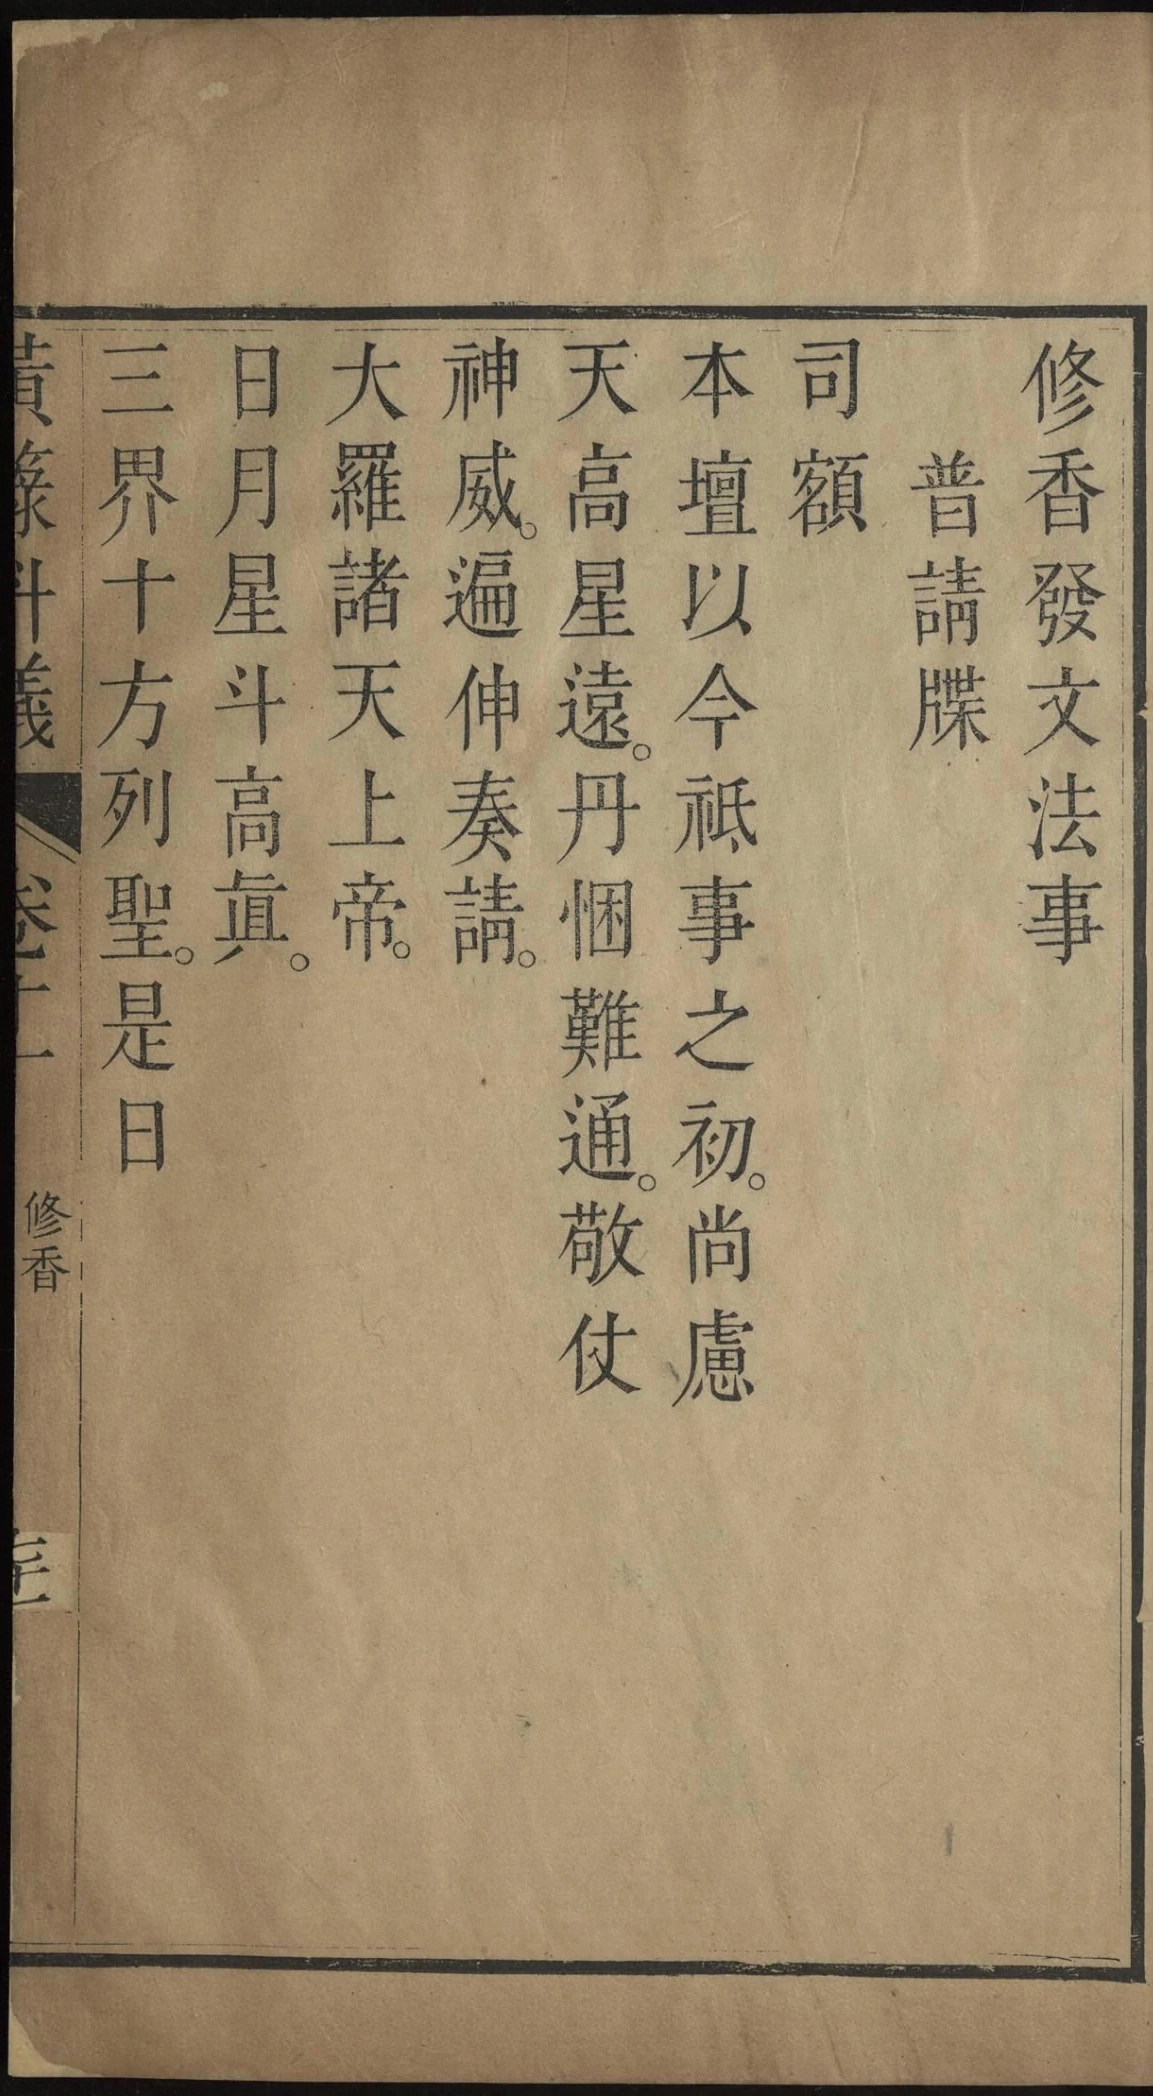 修香發文法事
普請牒
司額
本壇以今祗事之初。尚慮
天高星遠。丹悃難通。敬仗
神威。遍伸奏請。
大羅諸天上帝。
日月星斗高眞。
三界十方列聖。是日
黃籙科儀 卷十一 修香